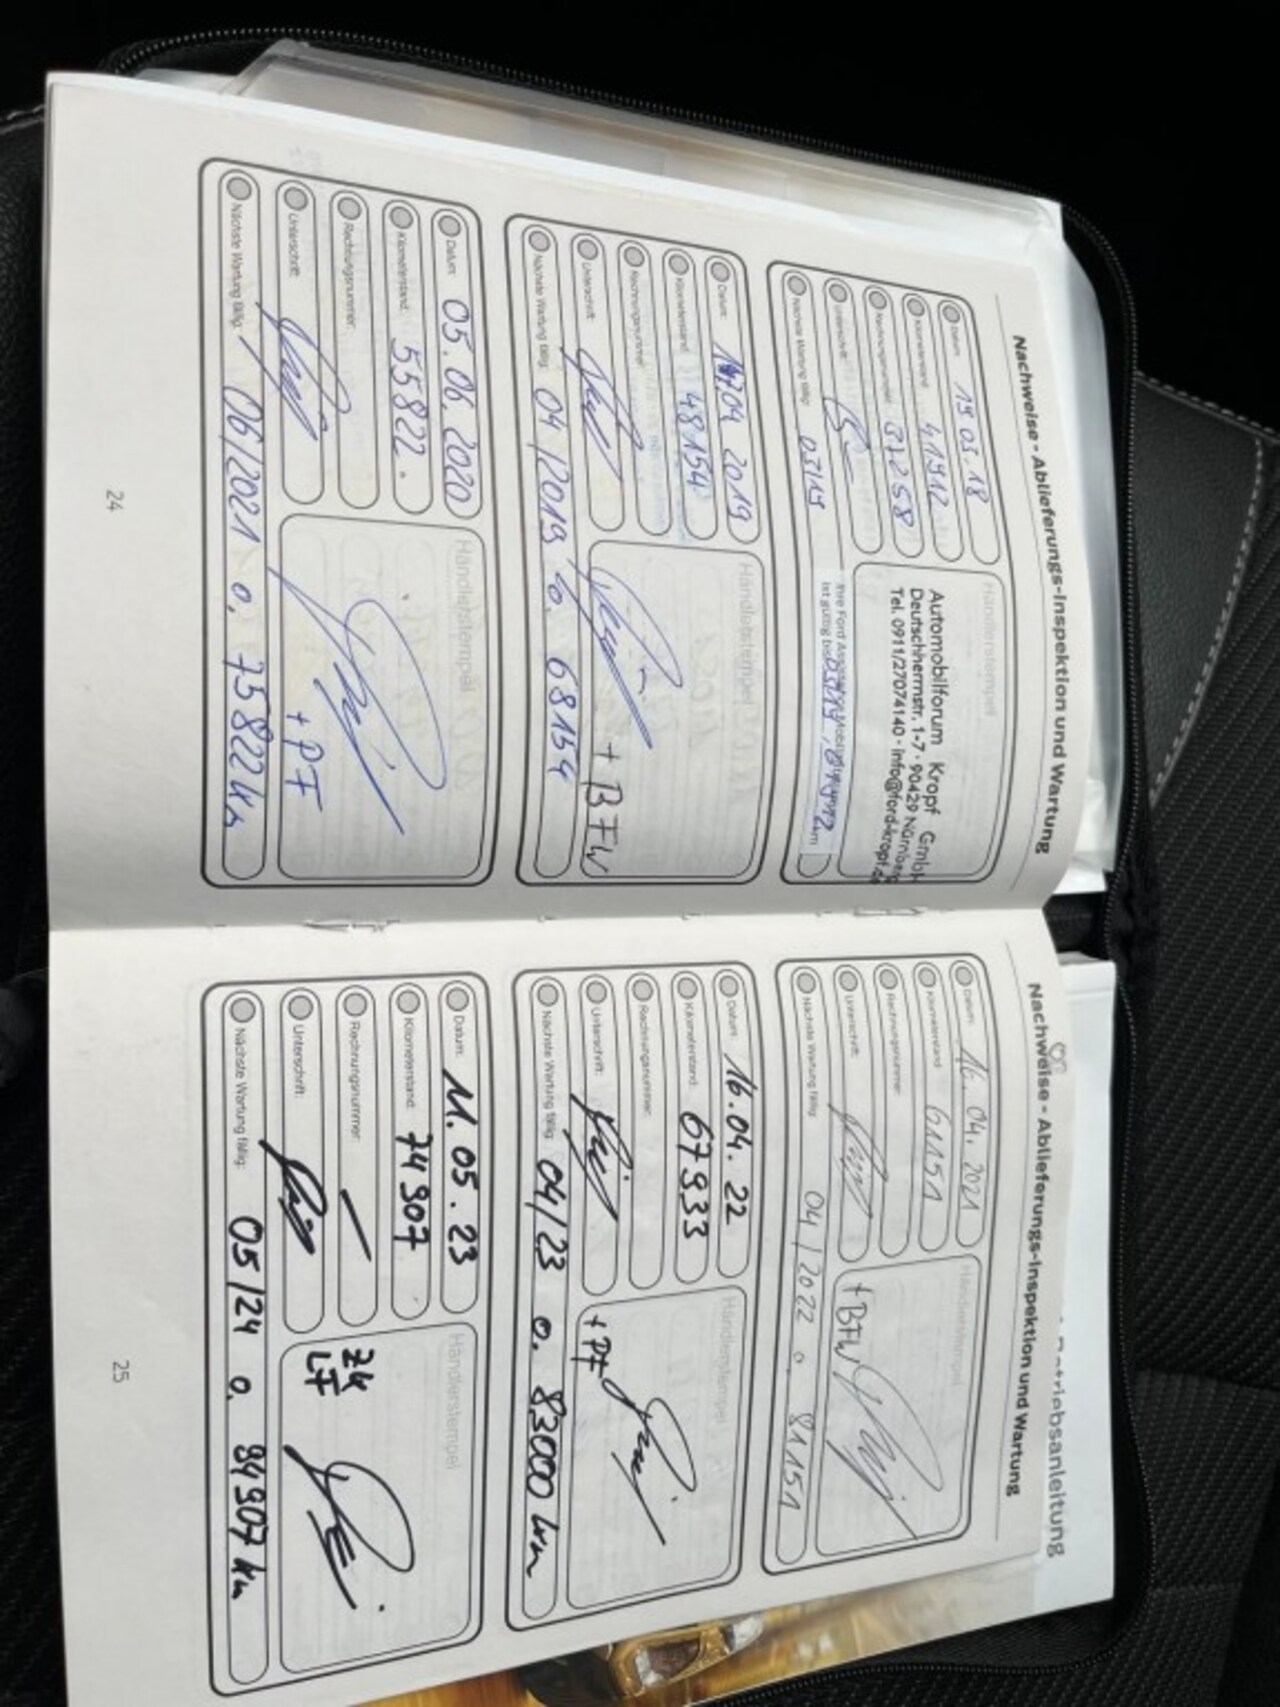 Nachweise - Ablieferungs-Inspektion und Wartung
Datum: 19.03.18
Kilometerstand: 41912
Rechnungsnummer: 37258
Unterschrift:
Nächste Wartung fällig: 03/19
Händlerstempel
Automobilforum Kropf GmbH
Deutschherrnstr. 1-7 · 90429 Nürnberg
Tel. 0911/27074140 · info@ford-kropf.de
Ihre Ford Assistance Mobilitätsgarantie
ist gültig bis 03/19 km
Datum: 17.04 2019
Kilometerstand: 48154
Rechnungsnummer:
Unterschrift:
Nächste Wartung fällig: 04/2019 o. 68154
Händlerstempel
+ BFW
Datum: 05.06.2020
Kilometerstand: 55822.
Rechnungsnummer:
Unterschrift:
Nächste Wartung fällig: 06/2021 o. 75822 km
Händlerstempel
+ PF
24
Betriebsanleitung
Nachweise - Ablieferungs-Inspektion und Wartung
Datum: 16.04.2021
Kilometerstand: 61151
Rechnungsnummer:
Unterschrift:
Nächste Wartung fällig: 04/2022 o. 81151
Händlerstempel
+ BFW
Datum: 16.04.22
Kilometerstand: 67933
Rechnungsnummer:
Unterschrift:
Nächste Wartung fällig: 04/23 o. 83000 km
Händlerstempel
+ PF
Datum: 11.05.23
Kilometerstand: 74907
Rechnungsnummer: –
Unterschrift:
Nächste Wartung fällig: 05/24 o. 94907 km
Händlerstempel
ZK
LF
25